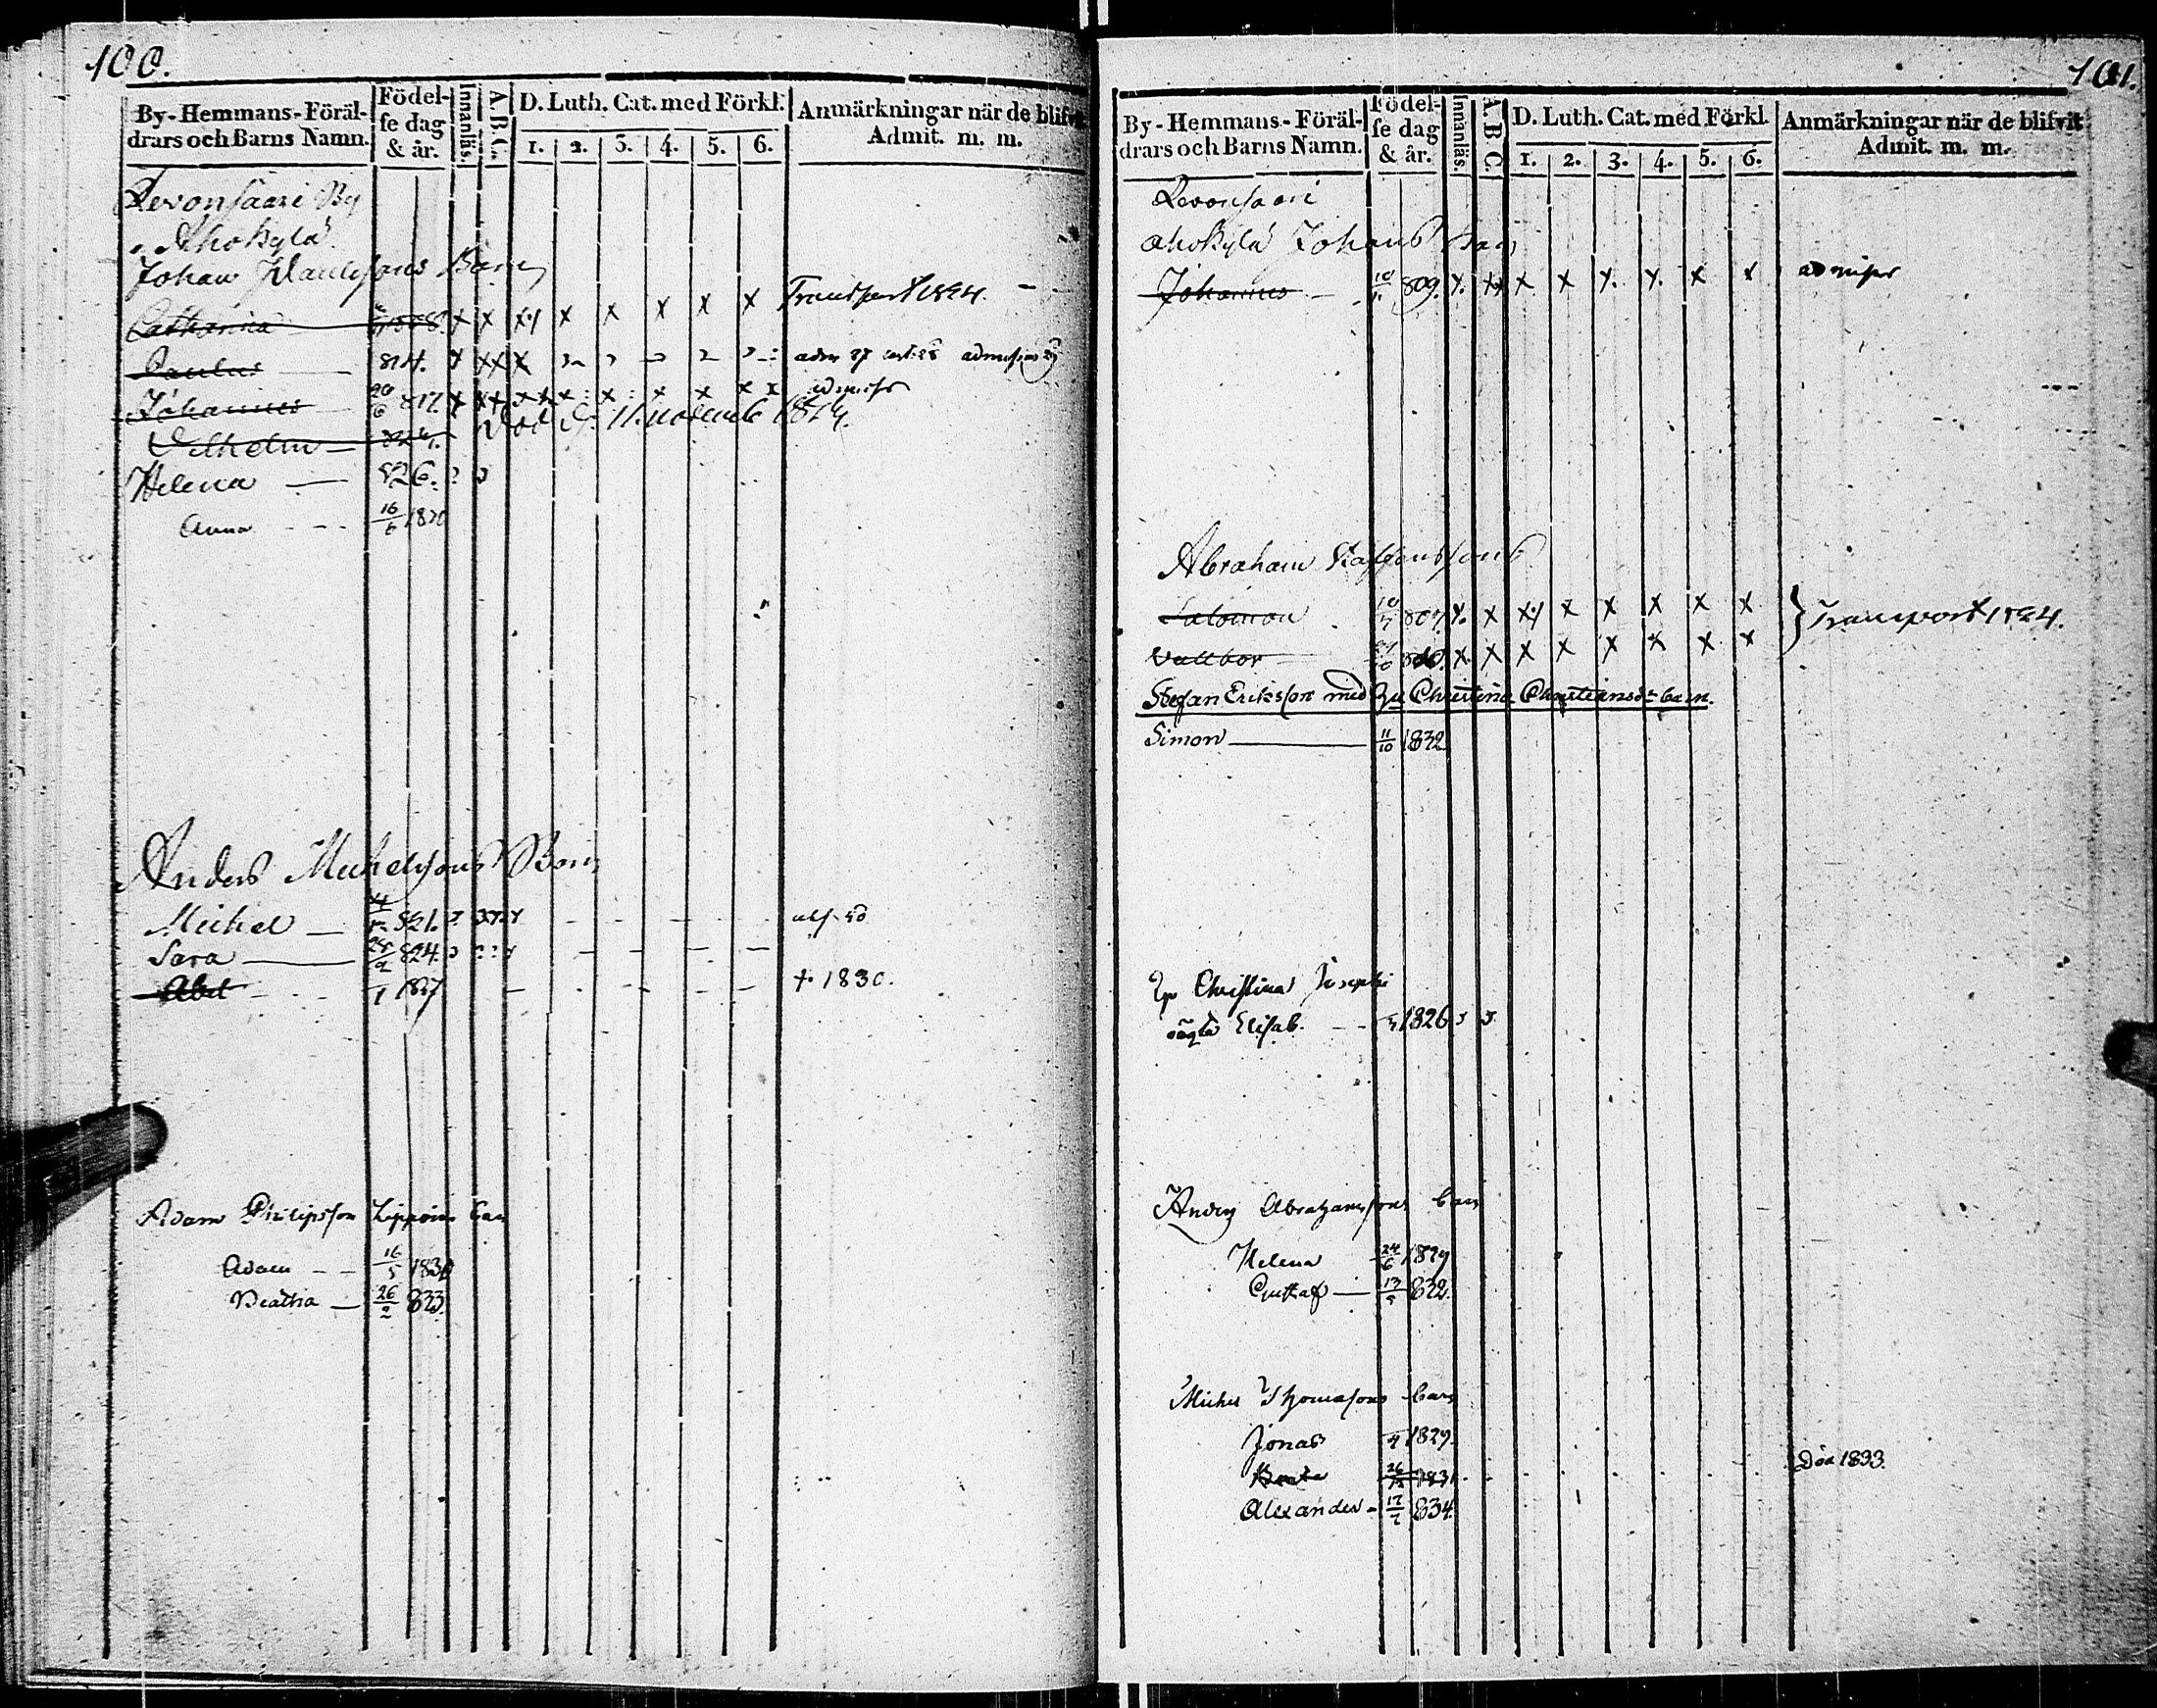 100.
By-Hemmans-Föräl-
drars och Barns Namn.
Födel-
se dag
& år.
Innanläs.
A.B.C.
D. Luth. Cat. med Förkl.
1. 2. 3. 4. 5. 6.
Anmärkningar när de blifvit
Admit. m. m.
Revonsaari By
Ahokylä
Johan Paulssons Barn
Catharina 1808. x x x x x x x x Transport 1824.
Paulus 814.
Johannes 20/6 817. x x x x x x x x admiss
Vilhelm 824. Död d. 11. novemb 1824.
Helena 826.
Anna 16/6 1830
Anders Michelssons Barn
Michel 821.
Sara 824.
Abel 1827 †. 1830.
Adam Philipsson Lipponens barn
Adam 16/5 1830
Beatha 26/2 833.
101.
By-Hemmans-Föräl-
drars och Barns Namn.
Födel-
se dag
& år.
Innanläs.
A.B.C.
D. Luth. Cat. med Förkl.
1. 2. 3. 4. 5. 6.
Anmärkningar när de blifvit
Admit. m. m.
Revonsaari
Ahokylä Johans barn
Johannes 809. x x x x x x admiss
Abraham Staffanssons
Salomon 10/7 807. x x x x x x x
} Transport 1824.
Vallbor x x x x x x x x
Stefan Eriksson med Hu Christina Christiansdr barn.
Simon 11/10 1832
Christina Josephi
oägta Elisab. 1826
Anders Abrahamssons barn
Helena 24/6 1829
Gustaf 13/5 832.
Michel Thomassons barn
Jonas 1829.
26 1831 Död 1833.
Alexander 17/7 834.